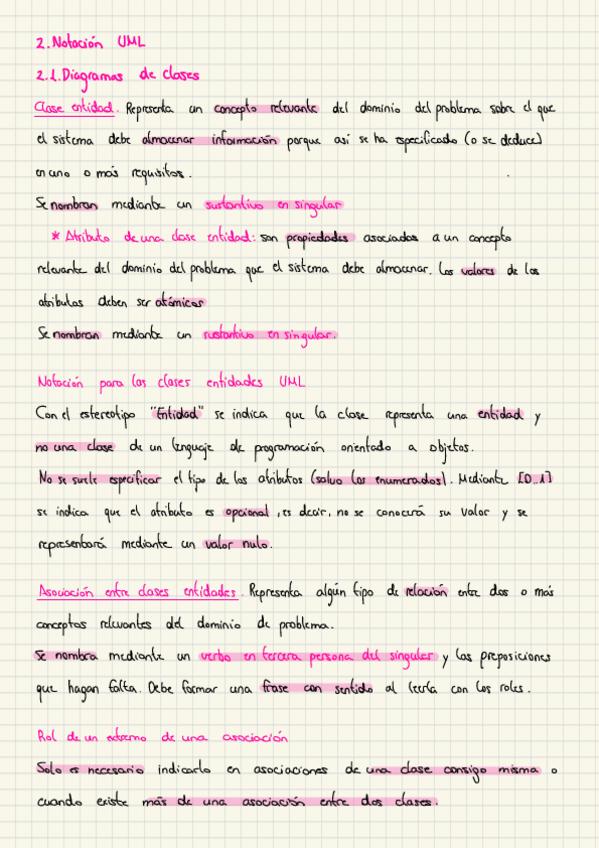 2. Notación UML
2.1. Diagramas de clases
Clase entidad. Representa un concepto relevante del dominio del problema sobre el que
el sistema debe almacenar información porque así se ha especificado (o se deduce)
en uno o más requisitos.
Se nombran mediante un sustantivo en singular
* Atributo de una clase entidad: son propiedades asociadas a un concepto
relevante del dominio del problema que el sistema debe almacenar. Los valores de los
atributos deben ser atómicos
Se nombran mediante un sustantivo en singular.
Notación para las clases entidades UML
Con el estereotipo "Entidad" se indica que la clase representa una entidad y
no una clase de un lenguaje de programación orientado a objetos.
No se suele especificar el tipo de los atributos (salvo los enumerados). Mediante [0..1]
se indica que el atributo es opcional, es decir, no se conocerá su valor y se
representará mediante un valor nulo.
Asociación entre clases entidades. Representa algún tipo de relación entre dos o más
conceptos relevantes del dominio de problema.
Se nombra mediante un verbo en tercera persona del singular y las preposiciones
que hagan falta. Debe formar una frase con sentido al leerla con los roles.
Rol de un extremo de una asociación
Solo es necesario indicarlo en asociaciones de una clase consigo misma o
cuando existe más de una asociación entre dos clases.